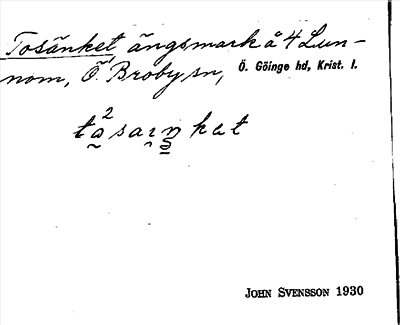 Tosänket, ängsmark å 4 Lun-
nom, Ö. Broby sn, Ö. Göinge hd, Krist. l.
JOHN SVENSSON 1930